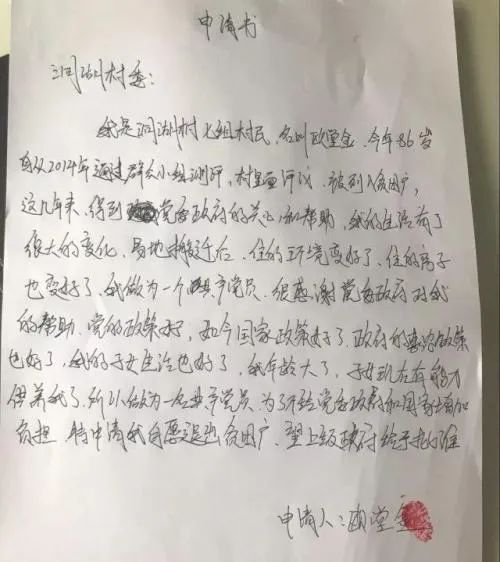 申请书
洞湖村委：
我是洞湖村七组村民，名叫欧堂金，今年86岁
自从2014年通过群众小组测评，村里面评议，被列入贫困户，
这几年来，得到党委政府的关心和帮助，我的生活有了
很大的变化，易地搬迁后，住的环境变好了，住的房子
也变好了，我做为一个共产党员，很感谢党委政府对我
的帮助，党的政策好，如今国家政策好了，政府的惠农政策
也好了，我的子女生活也好了，我年龄大了，子女现在有能力
供养我了，所以做为一名共产党员，为了不给党委政府和国家增加
负担，特申请我自愿退出贫困户，望上级政府给予批准
申请人：欧堂金